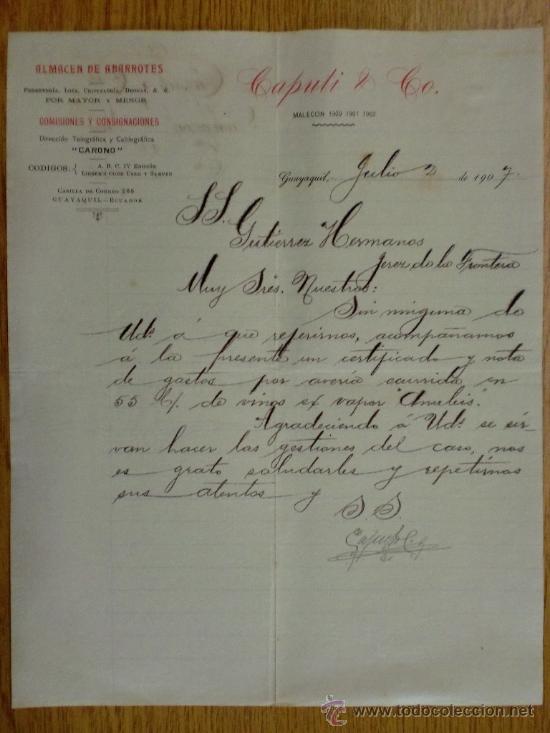 ALMACEN DE ABARROTES
Ferretería, Loza, Cristalería, Drogas, &. &.
POR MAYOR Y MENOR
COMISIONES Y CONSIGNACIONES
Dirección Telegráfica y Cablegráfica
"CARONO"
CODIGOS: { A. B. C. IV Edición
Lieber's code Used y Samper
Casilla de Correo 286
GUAYAQUIL-ECUADOR
Caputi & Co.
MALECON 1909 1901 1902
Guayaquil, Julio 2 de 1907.
SS.
Gutierrez Hermanos
Jerez de la Frontera
Muy Srés. Nuestros:
Sin ninguna de
Uds. á que referirnos, acompañamos
á la presente un certificado y nota
de gastos por avería ocurrida en
55 C/ de vinos ex vapor "Anubis".
Agradeciendo á Uds. se sir
van hacer las gestiones del caso, nos
es grato saludarles y repetirnos
sus atentos y
S S
todocoleccion
www.todocoleccion.net